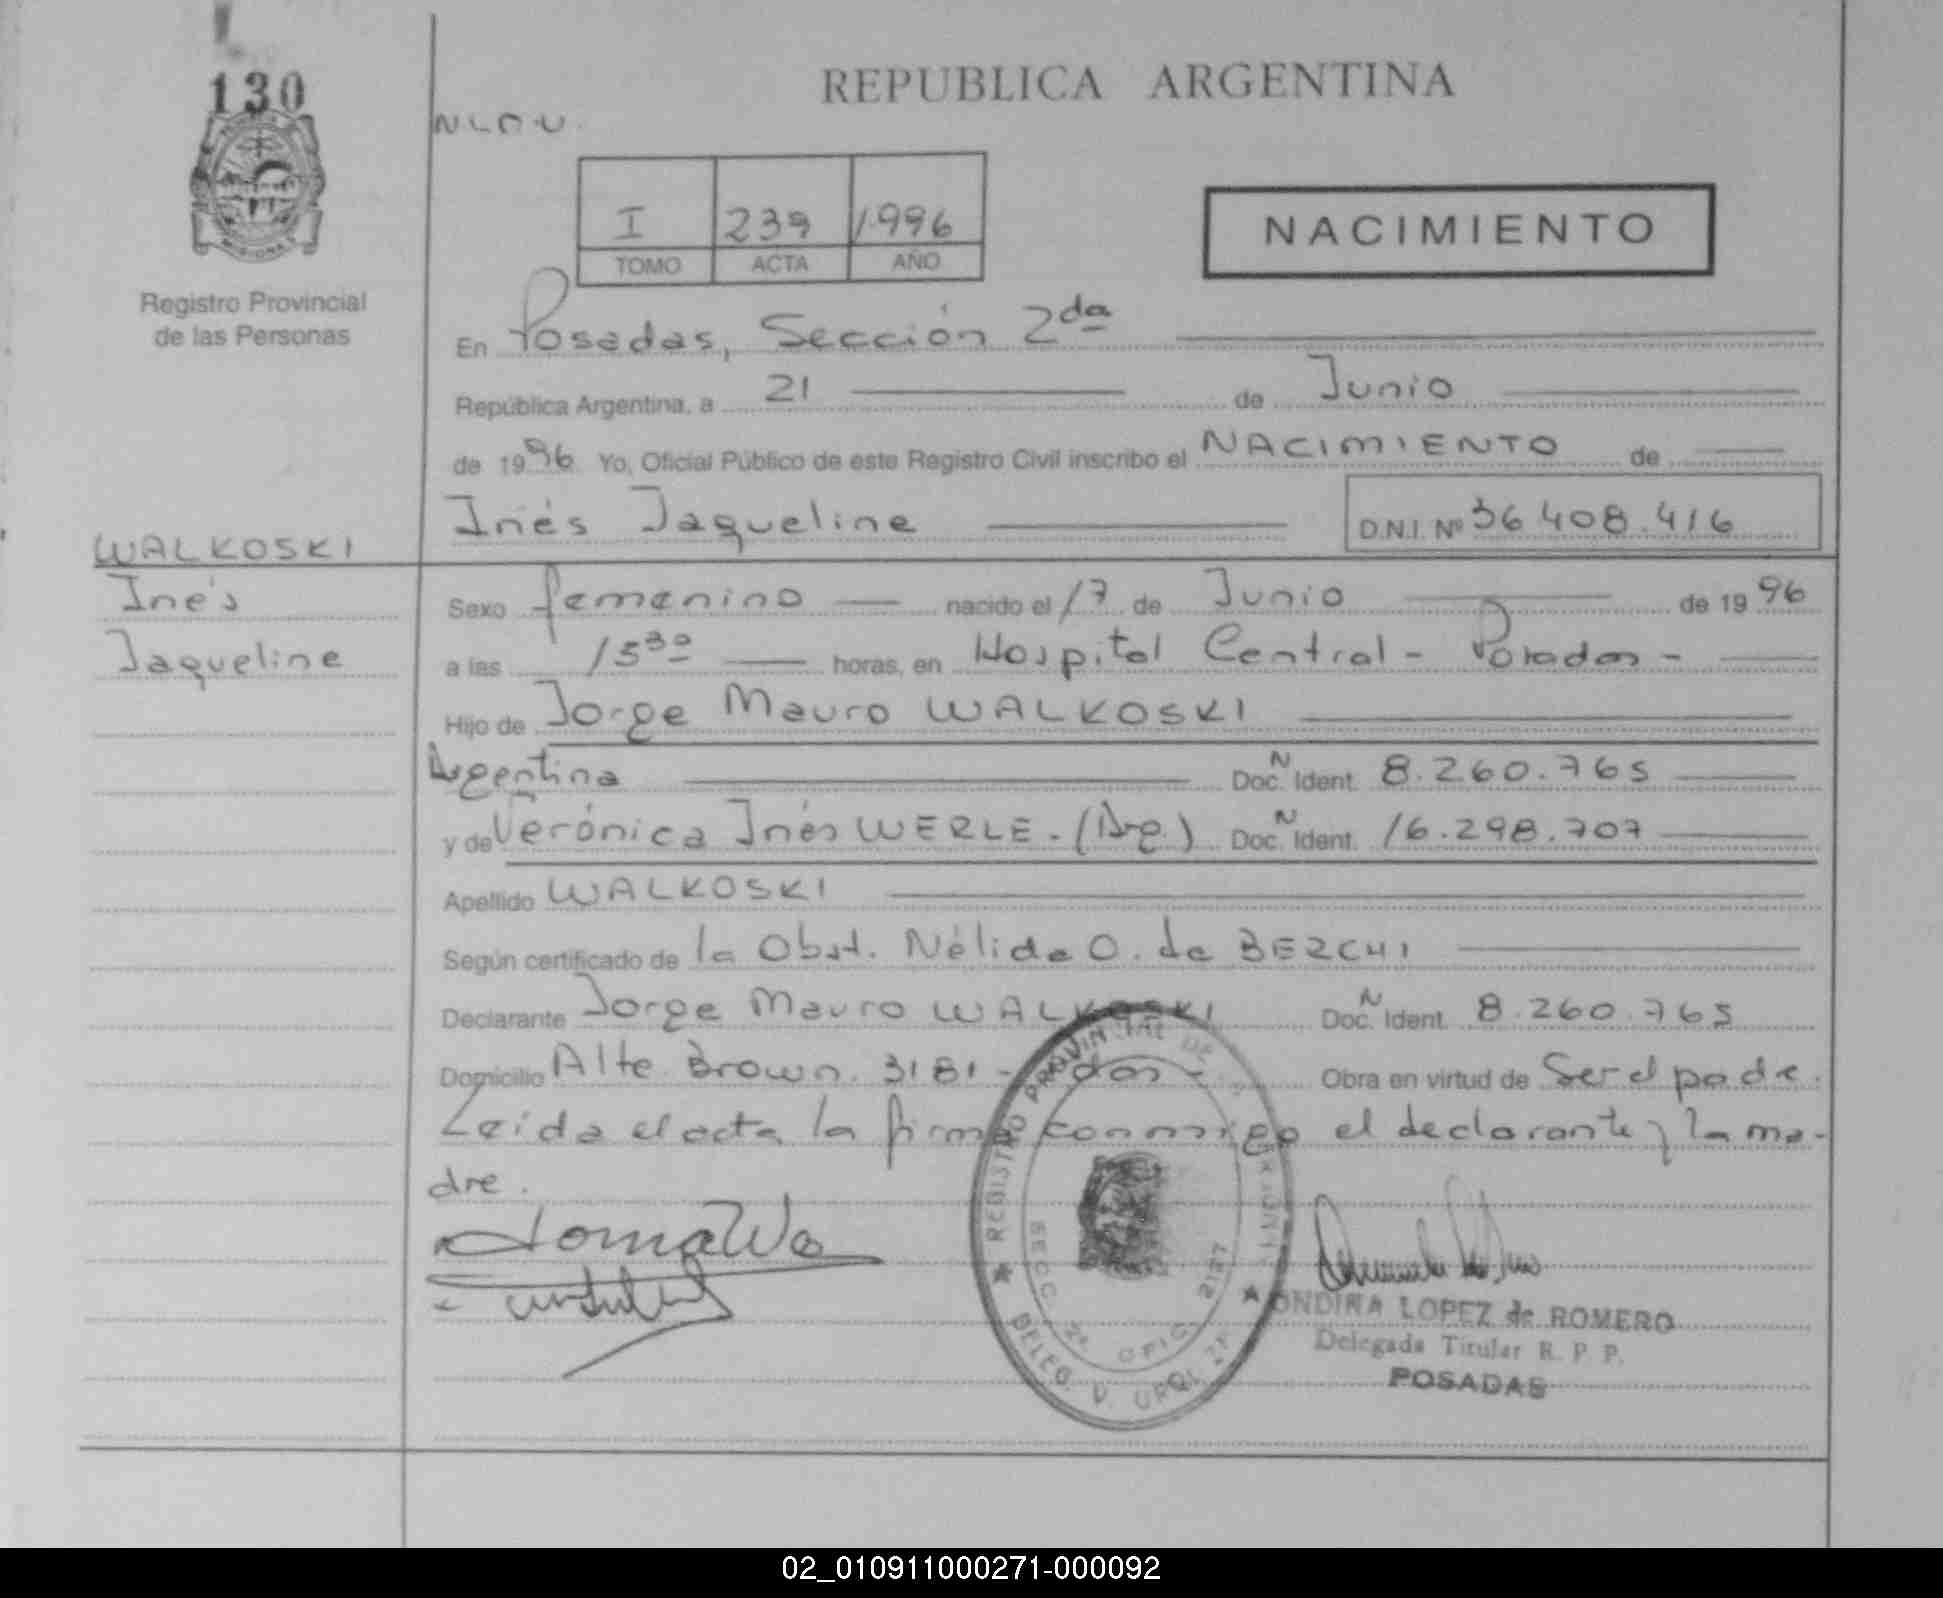 130
REPUBLICA ARGENTINA
PROVINCIA
MISIONES
Registro Provincial
de las Personas
I 239 1996
TOMO ACTA AÑO
NACIMIENTO
En Posadas, Sección 2da
República Argentina, a 21 de Junio
de 1996 Yo, Oficial Público de este Registro Civil inscribo el NACIMIENTO de
Inés Jaqueline D.N.I. Nº 36.408.416
WALKOSKI
Inés
Jaqueline
Sexo femenino nacido el 17 de Junio de 1996
a las 15 30 horas, en Hospital Central - Posadas -
Hijo de Jorge Mauro WALKOSKI
Argentina Doc. N Ident. 8.260.765
y de Verónica Inés WERLE - (Arg.) Doc. N Ident. 16.298.707
Apellido WALKOSKI
Según certificado de la Obst. Nélida O. de BERCHI
Declarante Jorge Mauro WALKOSKI Doc. N Ident. 8.260.765
Domicilio Alte. Brown. 3181 - Pdas - Obra en virtud de Ser el padre.
Leída el acta la firma conmigo el declarante y la ma-
dre.
REGISTRO PROVINCIAL DE
SECC. 2ª OFIC. 2127
DELEG. V. URQUIZA
ONDINA LOPEZ de ROMERO
Delegada Titular R. P. P.
POSADAS
02_010911000271-000092